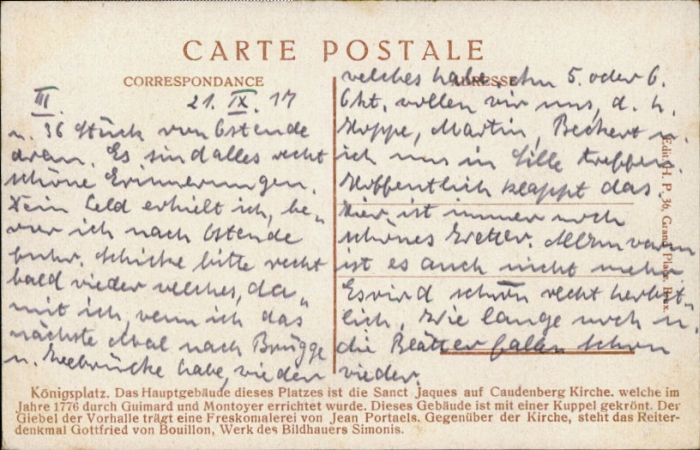 CARTE POSTALE
CORRESPONDANCE
ADRESSE
III. 21. IX. 17
u. 36 Stück von Ostende
dran. Es sind alles recht
schöne Erinnerungen.
Dein Geld erhielt ich, be„
vor ich nach Ostende
fuhr. Schicke bitte recht
bald wieder welches, da„
mit ich, wenn ich das
nächste Mal nach Brügge
u. Zeebrücke habe, wieder
welches habe. Am 5. oder 6.
Okt. wollen wir uns, d. h.
Hoppe, Martin, Beckert u.
ich uns in Lille treffen.
Hoffentlich klappt das.
Hier ist immer noch
schönes Wetter. Allzu warm
ist es auch nicht mehr
Es wird schon recht herbst„
lich. Wie lange noch u.
die Blätter fallen schon
wieder.
Edit. H. P. 36, Grand' Place, Brux.
Königsplatz. Das Hauptgebäude dieses Platzes ist die Sanct Jaques auf Caudenberg Kirche. welche im
Jahre 1776 durch Guimard und Montoyer errichtet wurde. Dieses Gebäude ist mit einer Kuppel gekrönt. Der
Giebel der Vorhalle trägt eine Freskomalerei von Jean Portaels. Gegenüber der Kirche, steht das Reiter-
denkmal Gottfried von Bouillon, Werk des Bildhauers Simonis.